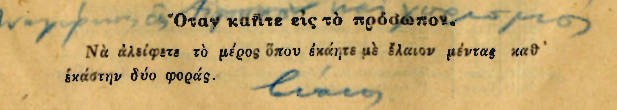 Ὅταν καῆτε εἰς τὸ πρόσωπον.
Νὰ ἀλείφετε τὸ μέρος ὅπου ἐκάητε μὲ ἔλαιον μέντας καθ᾽
ἑκάστην δύο φοράς.